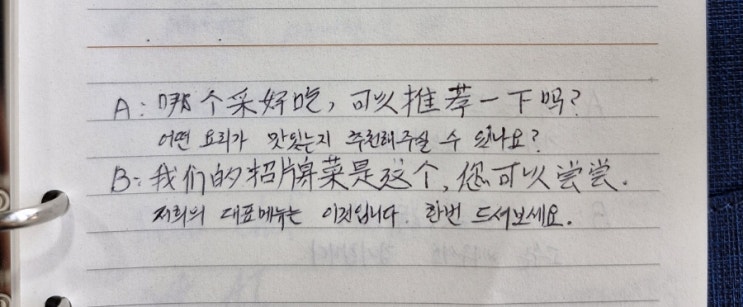 A: 哪个采好吃, 可以推荐一下吗?
어떤 요리가 맛있는지 추천해주실 수 있나요?
B: 我们的招牌菜是这个, 您可以尝尝.
저희의 대표메뉴는 이것입니다. 한번 드셔보세요.